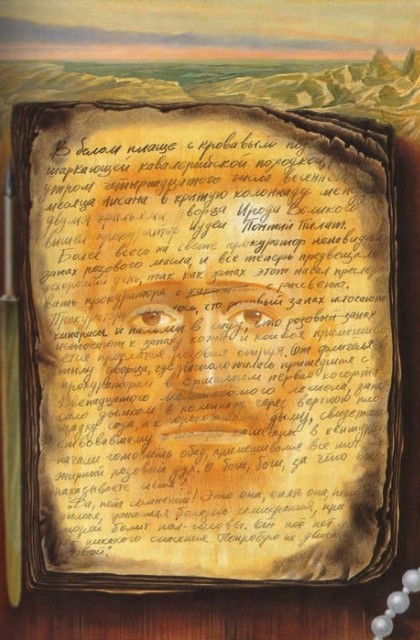 В белом плаще с кровавым под
шаркающей кавалерийской походкой,
утром четырнадцатого числа весеннего
месяца нисана в крытую колоннаду между
двумя крыльями дворца Ирода Великого
вышел прокуратор Иудеи Понтий Пилат.
Более всего на свете прокуратор ненавидел
запах розового масла, и все теперь предвещало
нехороший день, так как запах этот начал преследо
вать прокуратора с рассвета.
Прокуратору том, что розовый запах источают
кипарисы и пальмы в саду, что розовый запах
к запаху кожи и конвоя примешива
ется проклятая розовая струя. От флигелей в
тылу дворца, где расположилась пришедшая с
прокуратором первая когорта
Двенадцатого легиона, зано
сило дымком в колоннаду через верхнюю пло
щадку сада, и к горьковатому дыму, свидетель
ствовавшему кашевары в кентур
начали готовить обед, примешивался все тот
жирный розовый дух. О боги, боги, за что вы
наказываете меня?
"Да, нет сомнений! Это она, опять она, непо
димая, ужасная болезнь гемикрания, при
торой болит пол-головы. От неё нет
нет никакого спасения. Попробую не двигать
ловой".